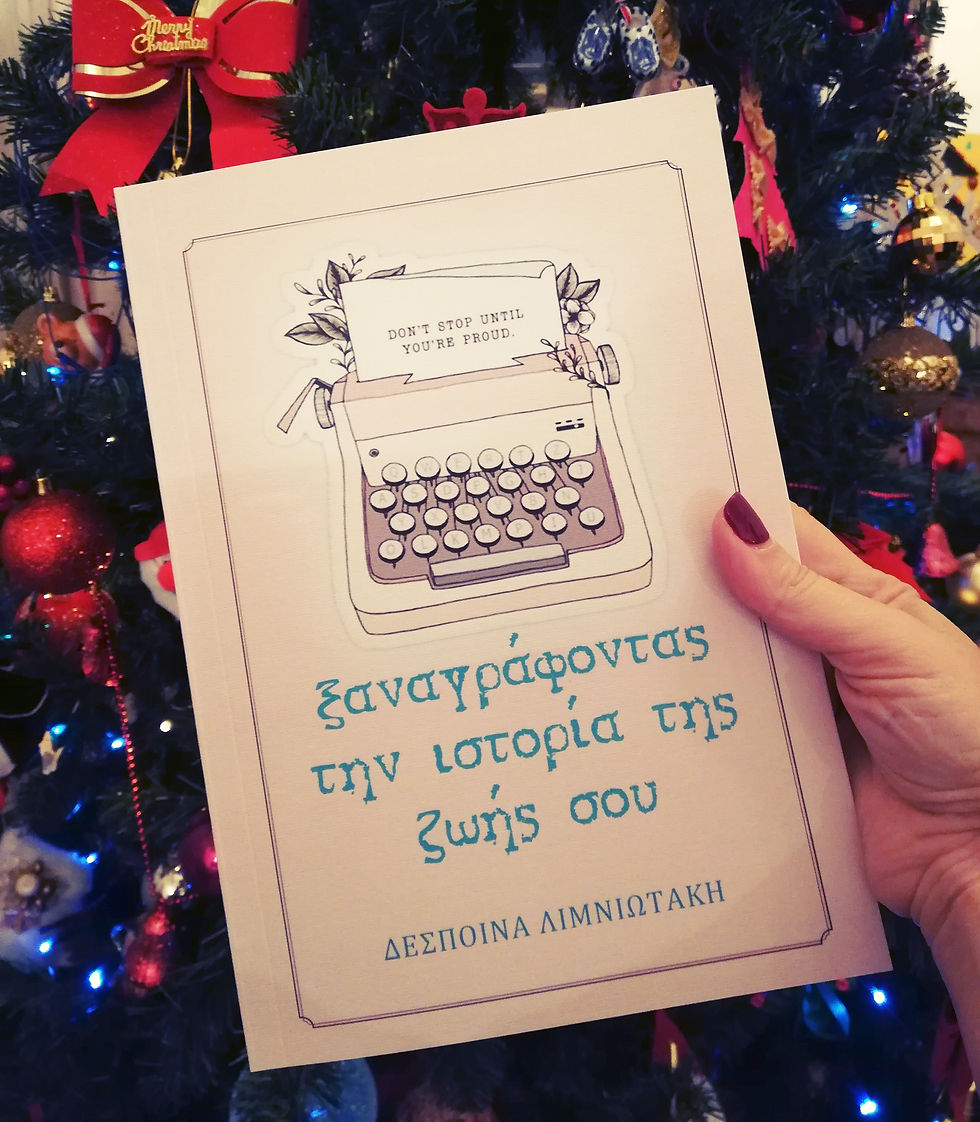 Merry
Christmas
DON'T STOP UNTIL
YOU'RE PROUD.
ξαναγράφοντας
την ιστορία της
ζωής σου
ΔΕΣΠΟΙΝΑ ΛΙΜΝΙΩΤΑΚΗ